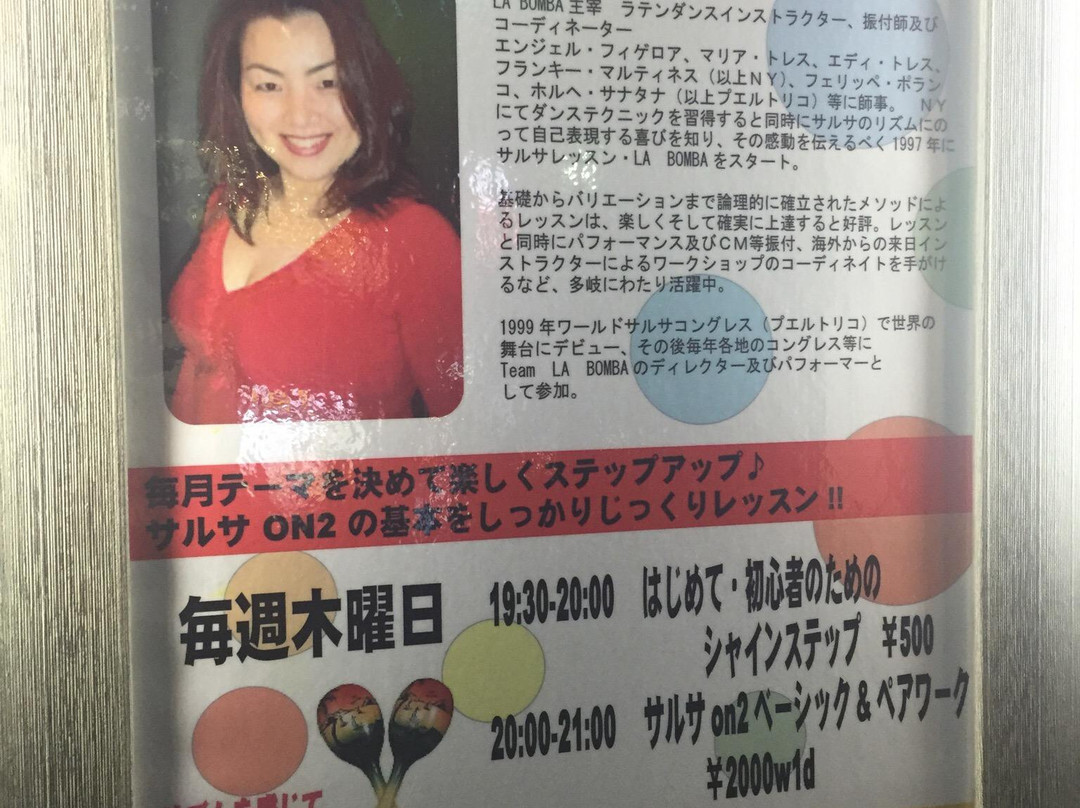 LA BOMBA 主宰　ラテンダンスインストラクター、振付師及び
コーディネーター
エンジェル・フィゲロア、マリア・トレス、エディ・トレス、
フランキー・マルティネス（以上ＮＹ）、フェリッペ・ポラン
コ、ホルヘ・サナタナ（以上プエルトリコ）等に師事。　ＮＹ
にてダンステクニックを習得すると同時にサルサのリズムにの
って自己表現する喜びを知り、その感動を伝えるべく 1997 年に
サルサレッスン・LA　BOMBA をスタート。
基礎からバリエーションまで論理的に確立されたメソッドによ
るレッスンは、楽しくそして確実に上達すると好評。レッスン
と同時にパフォーマンス及びＣＭ等振付、海外からの来日イン
ストラクターによるワークショップのコーディネイトを手がけ
るなど、多岐にわたり活躍中。
1999 年ワールドサルサコングレス（プエルトリコ）で世界の
舞台にデビュー、その後毎年各地のコングレス等に
Team　LA　BOMBA のディレクター及びパフォーマーと
して参加。
毎月テーマを決めて楽しくステップアップ♪
サルサ ON2 の基本をしっかりじっくりレッスン !!
毎週木曜日
19:30-20:00　はじめて・初心者のための
シャインステップ　￥500
20:00-21:00　サルサ on2 ベーシック & ペアワーク
￥2000w1d